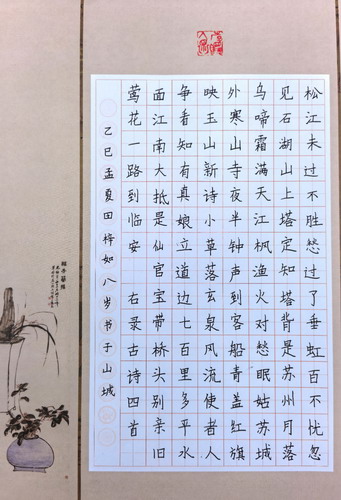 松江未过不胜愁过了垂虹百不忧忽
见石湖山上塔定知塔背是苏州月落
乌啼霜满天江枫渔火对愁眠姑苏城
外寒山寺夜半钟声到客船青盖红旗
映玉山新诗小草落玄泉风流使者人
争看知有真娘立道边七百里多平水
面江南大抵是仙官宝带桥头别亲旧
莺花一路到临安 右录古诗四首
乙巳孟夏田梓如八岁书于山城